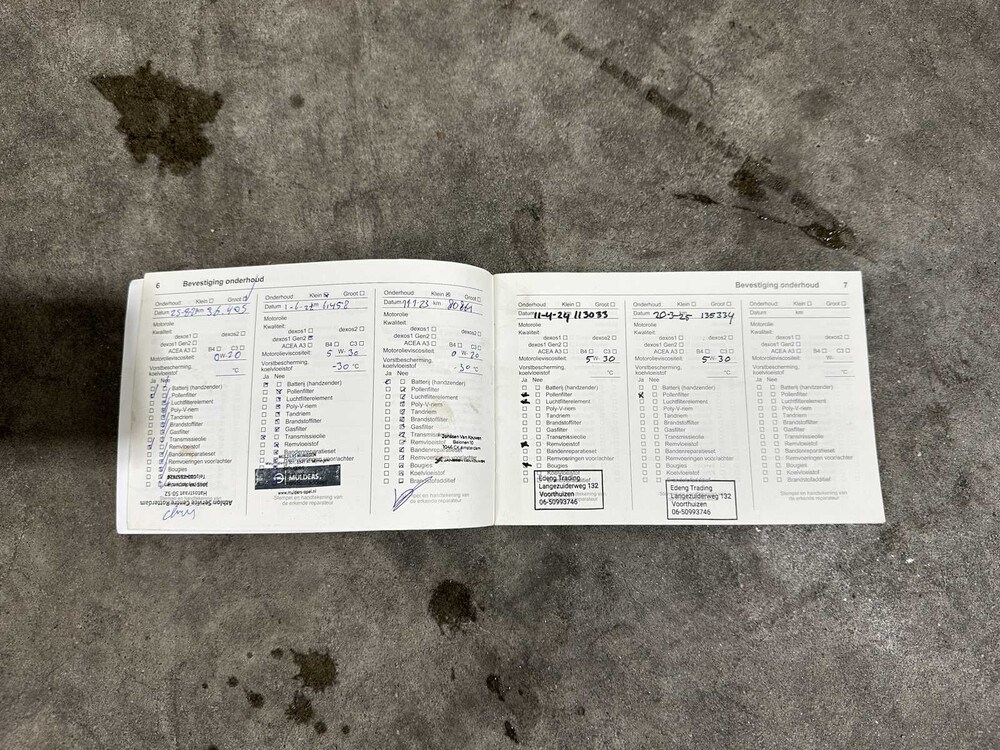 6 Bevestiging onderhoud
Onderhoud: Klein Groot
Datum km
Motorolie
Kwaliteit:
dexos1 dexos2
dexos1 Gen2
ACEA A3 B4 C3
Motorolieviscositeit: 0W-20
Vorstbescherming,
koelvloeistof °C
Ja Nee
Batterij (handzender)
Pollenfilter
Luchtfilterelement
Poly-V-riem
Tandriem
Brandstoffilter
Gasfilter
Transmissieolie
Remvloeistof
Bandenreparatieset
Remvoeringen voor/achter
Bougies
Athlon Service Centre Rotterdam
Onderhoud: Klein Groot
Datum km
Motorolie
Kwaliteit:
dexos1 dexos2
dexos1 Gen2
ACEA A3 B4 C3
Motorolieviscositeit: 5 W-30
Vorstbescherming,
koelvloeistof -30 °C
Ja Nee
Batterij (handzender)
Pollenfilter
Luchtfilterelement
Poly-V-riem
Tandriem
Brandstoffilter
Gasfilter
Transmissieolie
Remvloeistof
Bandenreparatieset
Remvoeringen voor/achter
MULDERS
www.mulders-opel.nl
Stempel en handtekening van
de erkende reparateur
Onderhoud: Klein Groot
Datum km
Motorolie
Kwaliteit:
dexos1 dexos2
dexos1 Gen2
ACEA A3 B4 C3
Motorolieviscositeit: 0 W-20
Vorstbescherming,
koelvloeistof -30 °C
Ja Nee
Batterij (handzender)
Pollenfilter
Luchtfilterelement
Poly-V-riem
Tandriem
Brandstoffilter
Gasfilter
Transmissieolie
Remvloeistof
Bandenreparatieset
Remvoeringen
Bougies
Koelvloeistof
Brandstofadditief
Stempel en handtekening van
de erkende reparateur
Bevestiging onderhoud 7
Onderhoud: Klein Groot
Datum 11-4-24 113033
Motorolie
Kwaliteit:
dexos1 dexos2
dexos1 Gen2
ACEA A3 B4 C3
Motorolieviscositeit: 5W-30
Vorstbescherming,
koelvloeistof °C
Ja Nee
Batterij (handzender)
Pollenfilter
Luchtfilterelement
Poly-V-riem
Tandriem
Brandstoffilter
Gasfilter
Transmissieolie
Remvloeistof
Bandenreparatieset
Remvoeringen voor/achter
Bougies
Edeng Trading
Langezuiderweg 132
Voorthuizen
06-50993746
Onderhoud: Klein Groot
Datum 20-3-25 135334
Motorolie
Kwaliteit:
dexos1 dexos2
dexos1 Gen2
ACEA A3 B4 C3
Motorolieviscositeit: 5W-30
Vorstbescherming,
koelvloeistof °C
Ja Nee
Batterij (handzender)
Pollenfilter
Luchtfilterelement
Poly-V-riem
Tandriem
Brandstoffilter
Gasfilter
Transmissieolie
Remvloeistof
Bandenreparatieset
Remvoeringen voor/achter
Bougies
Koelvloeistof
Edeng Trading
Langezuiderweg 132
Voorthuizen
06-50993746
Onderhoud: Klein Groot
Datum km
Motorolie
Kwaliteit:
dexos1 dexos2
dexos1 Gen2
ACEA A3 B4 C3
Motorolieviscositeit: W-
Vorstbescherming,
koelvloeistof °C
Ja Nee
Batterij (handzender)
Pollenfilter
Luchtfilterelement
Poly-V-riem
Tandriem
Brandstoffilter
Gasfilter
Transmissieolie
Remvloeistof
Bandenreparatieset
Remvoeringen voor/achter
Bougies
Koelvloeistof
Brandstofadditief
Stempel en handtekening van
de erkende reparateur